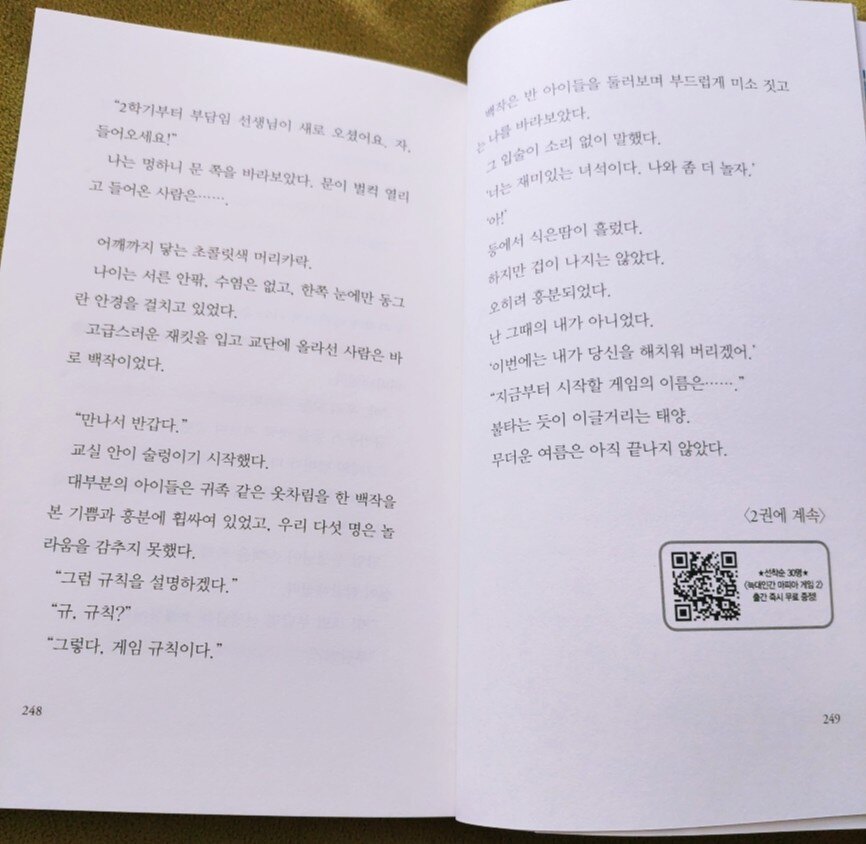 “2학기부터 부담임 선생님이 새로 오셨어요. 자,
들어오세요!”
나는 멍하니 문 쪽을 바라보았다. 문이 벌컥 열리
고 들어온 사람은…….
어깨까지 닿는 초콜릿색 머리카락.
나이는 서른 안팎, 수염은 없고, 한쪽 눈에만 동그
란 안경을 걸치고 있었다.
고급스러운 재킷을 입고 교단에 올라선 사람은 바
로 백작이었다.
“만나서 반갑다.”
교실 안이 술렁이기 시작했다.
대부분의 아이들은 귀족 같은 옷차림을 한 백작을
본 기쁨과 흥분에 휩싸여 있었고, 우리 다섯 명은 놀
라움을 감추지 못했다.
“그럼 규칙을 설명하겠다.”
“규, 규칙?”
“그렇다. 게임 규칙이다.”
248
백작은 반 아이들을 둘러보며 부드럽게 미소 짓고
는 나를 바라보았다.
그 입술이 소리 없이 말했다.
‘너는 재미있는 녀석이다. 나와 좀 더 놀자.’
‘아!’
등에서 식은땀이 흘렀다.
하지만 겁이 나지는 않았다.
오히려 흥분되었다.
난 그때의 내가 아니었다.
‘이번에는 내가 당신을 해치워 버리겠어.’
“지금부터 시작할 게임의 이름은…….”
불타는 듯이 이글거리는 태양.
무더운 여름은 아직 끝나지 않았다.
〈2권에 계속〉
★선착순 30명★
〈늑대인간 마피아 게임 2〉
출간 즉시 무료 증정!
249